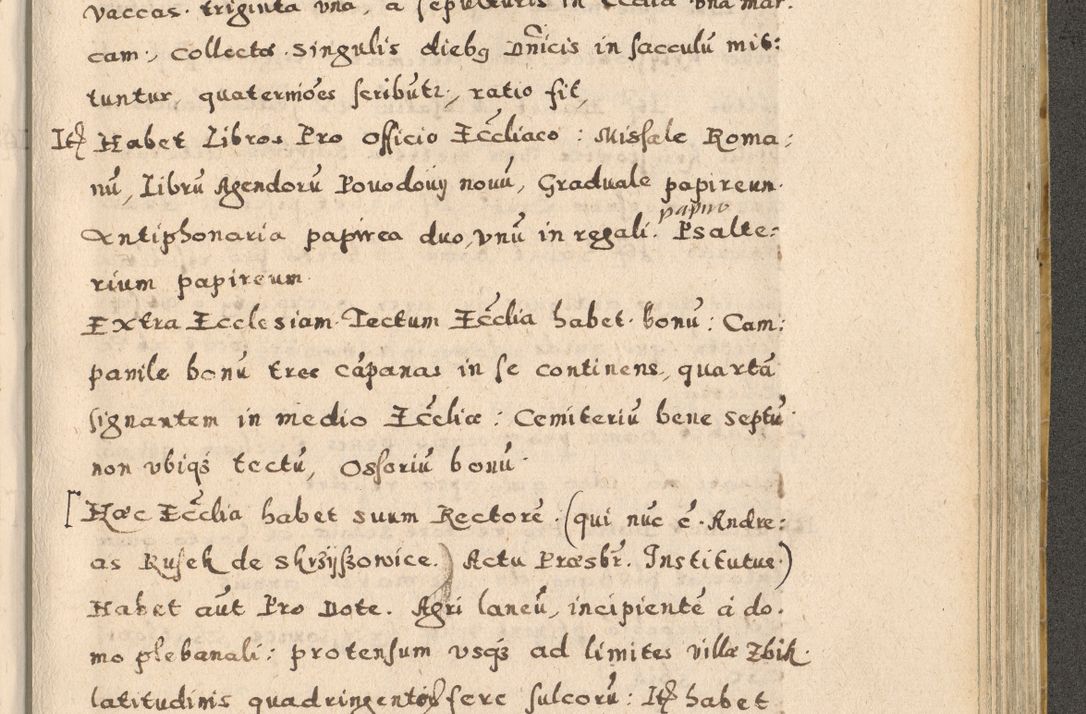 vaccas. triginta vna, a sepulturis in Ecclia vna mar.
cam:, collecta singulis diebq Dnicis in sacculū mit:
tuntur, quatermoēs scributr, ratio fit,
Itē Habet Libros Pro officio Eccliaco: Missale Roma:
nū, Librū Agendorū Povodouij nouū, Graduale papireum.
Antiphonaria papirea duo, vnū in regali. papiro Psalte:
rium papireum.
Extra Ecclesiam. Tectum Ecclia habet. bonū: Cam:
panile bonū tres cāpanas in se continens, quartā
signantem in medio Eccliæ: Cemiteriū bene septū.
non vbiqś tectū, Ossoriū bonū.
Hæc Ecclia habet suum Rectorē. (qui nūc ē. Andre:
as Rusek de Skrzÿszowice.) Actu Præsbr. Institutus)
Habet aūt Pro Dote. Agri laneū, incipientē á do.
mo plebanali: protensum vsqś ad limites villæ Zbik.
latitudinis quadringentos fere sulcorū: Itē habet